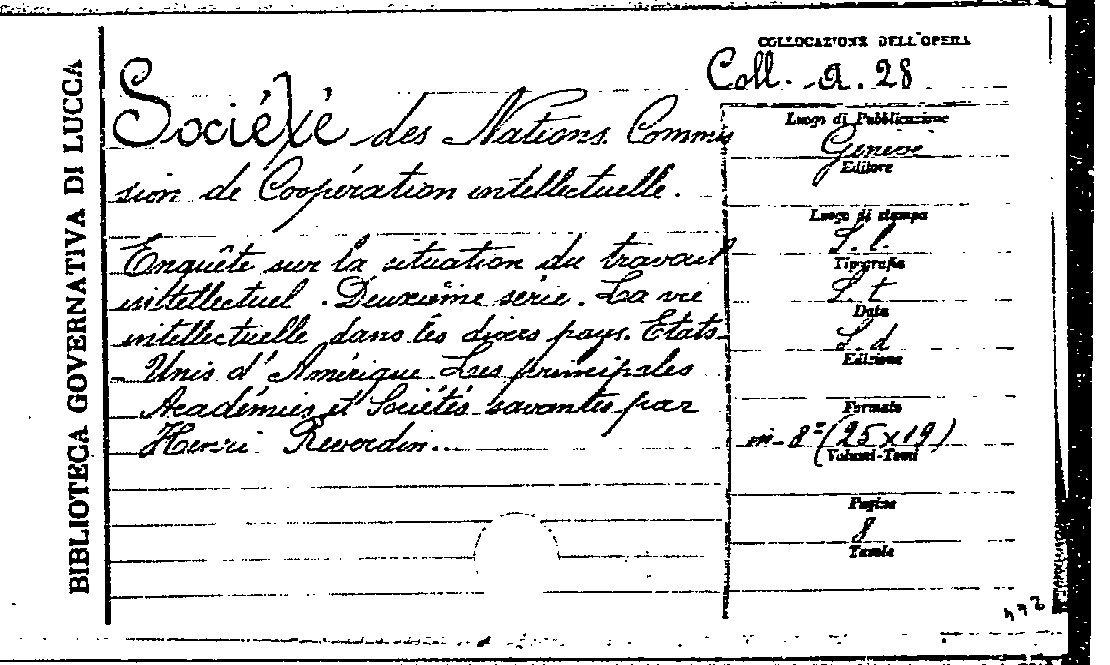 BIBLIOTECA GOVERNATIVA DI LUCCA
COLLOCAZIONE DELL'OPERA
Coll. a. 28
Société des Nations. Commis
sion de Coopération intellectuelle.
Enquête sur la situation du travail
intellectuel. Deuxième série. La vie
intellectuelle dans les divers pays. Etats-
- Unis d'Amérique Les principales
Académies et Sociétés savantes par
Henri Reverdin..
Luogo di Pubblicazione
Genève
Editore
Luogo di stampa
S. l.
Tipografia
S. t
Data
S. d
Edizione
Formato
in-8º (25x19)
Volumi-Tomi
Pagine
8
Tavole